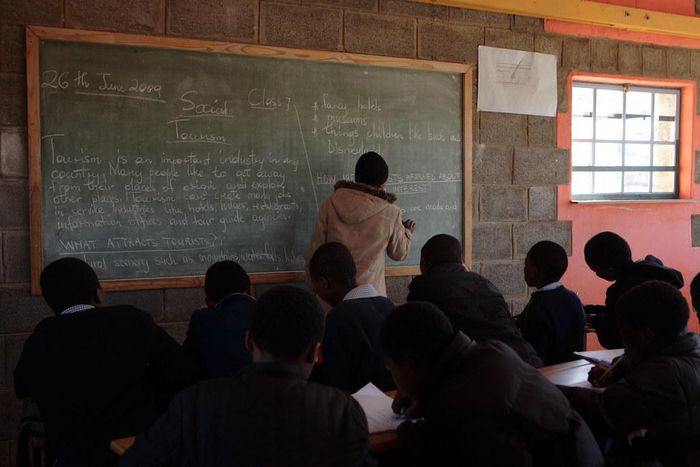 26th June 2009
Social
Class 7
Tourism
Tourism is an important industry in any
country. Many people like to get away
from their places of origin and explore
other places. Tourism can create jobs
in service industries like hotels, lodges, restaurants,
information offices and tour guide agencies.
WHAT ATTRACTS TOURISTS?
scenery such as mountains, waterfalls
* fancy hotels
* museums
* things children like such as
Disneyland
HOW ABOUT
INTEREST?
are made and